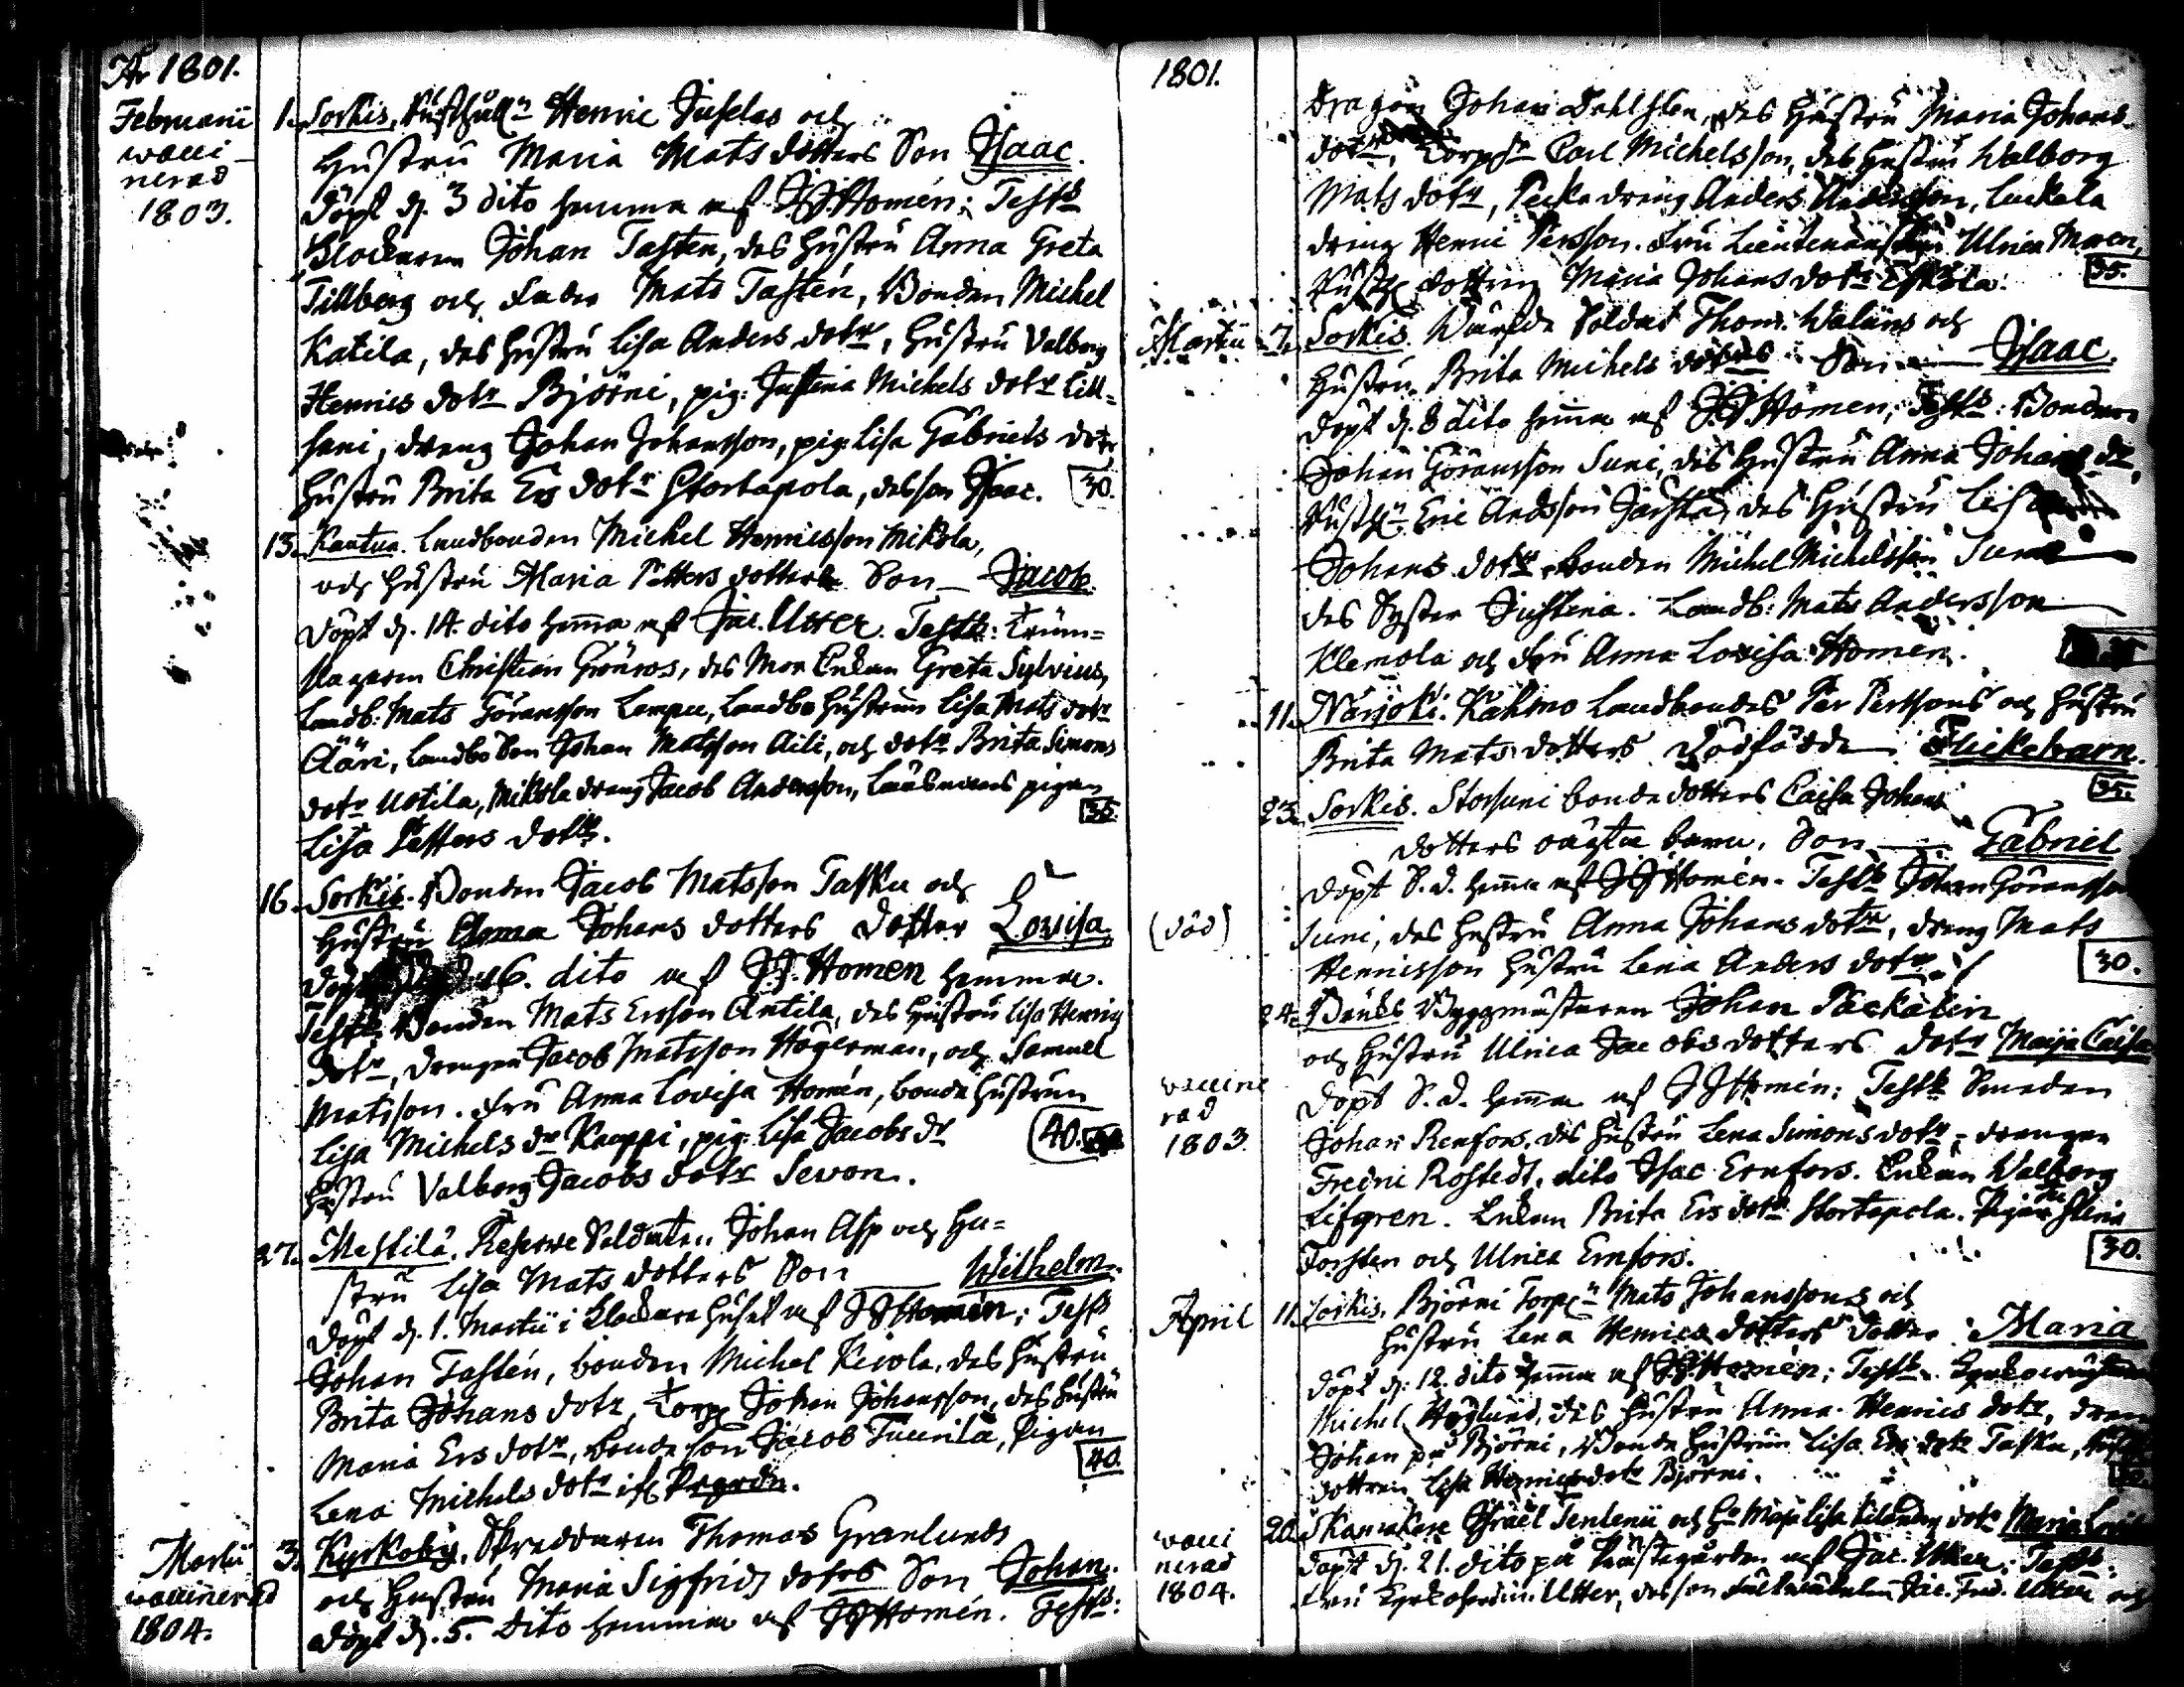 År 1801.
Februarii 1. Sorkis, Rusthåll:n Henric Juselas och
vacci- Hustru Maria Mats dotters Son Isaac.
nerad döpt d. 3 dito hemma af JJHomén; Test:
1803. Klockaren Johan Tasten, des Hustru Anna Greta
Tillberg och Mats Tastén, Bonden Michel
Katila, des hustru Lisa Anders dotr, Hustru Valborg
Henrics dotr Björni, pig: Justina Michels dotr Lill-
suni, dreng Johan Johansson, pig: Lisa Gabriels dotr
hustru Brita Ers dotr Stortapola, des son Isaac. 30.
13. Kautua. Landbonden Michel Henricsson Mikola,
och hustru Maria Petters dotters Son Jacob
döpt d. 14. dito hemma af Jac. Utter. Test: Trum-
slagaren Christian Grönroos, des Mor Enkan Greta Sylvius,
Landb: Mats Göransson Lempu, Landbo Hustrun Lisa Mats dotr
Ääri, Landbo Son Johan Matsson Aili, och dotr Brita Simons
dotr Uotila, Mikola dreng Jacob Andersson, Länsmans pigan
Lisa Petters dotr. 30
16. Sorkis. Bonden Jacob Matsson Tasku och
Hustru Anna Johans dotters dotter Lovisa
döpt 16. dito af J.J. Homén hemma.
Test: Bonden Mats Ersson Antila, des Hustru Lisa Henrics
dotr, drengen Jacob Matsson Hägerman, och Samuel
Matsson. Fru Anna Lovisa Homén, bonde hustrun
Lisa Michels dr Kauppi, pig: Lisa Jacobs dr 40.
hustru Valborg Jacobs dotr Sevon.
27. Mestilä. Reserve Soldaten Johan Asp och Hu-
stru Lisa Mats dotters Son Wilhelm.
döpt d. 1. Martii i Klockare huset af JJHomén; Test
Johan Tastén, bonden Michel Kivola, des hustru
Brita Johans dotr, Torp: Johan Johansson, des hustru
Maria Ers dotr, bonde son Jacob Tuurila, Pigan
Lena Michels dotr 40.
Martii 3. Kyrkoby. Skreddaren Thomas Granlunds
vaccinerad och hustru Maria Sigfrids dotrs Son Johan.
1804. döpt d. 5. dito hemma af JJHomén. Test:
1801.
Dragon Johan Dahlsten, des Hustru Maria Johans
dotr, Torp:r Carl Michelsson, des hustru Walborg
Mats dotr, Pecka dreng Anders Andersson, Luckala
dreng Henric Persson. Fru Ulrica
dottren Maria Johans dotr Eskola. 35.
Martii 7. Sorkis. Värfde Soldat Thom: Waléns och
Hustru Brita Michels dotters Son Isaac.
döpt d. 8 dito hemma af J.J. Homén; Test: Bonden
Johan Göransson Suni, des Hustru Anna Johans dr,
Rusth:n Eric Andsson des Hustru Lisa
Johans dotr, bonden Michel Michelsson Suni
des Syster Justina. Landb: Mats Andersson
Klemola och Fru Anna Lovisa Homén.
11. Närjoki. Kahmo Landbondes Per Perssons och hustru
Brita Mats dotters Dödfödde Flickebarn.
35.
23. Sorkis. Storsuni bonde dotters Caisa Johans
dotters oägta barn, Son Gabriel
döpt S. d. hemma af JJHomén. Test: Johan Göransson
(död) Suni, des hustru Anna Johans dotr, dreng Mats
Henricsson hustru Lena Anders dotr. 30.
24. Bruks Byggmästaren Johan Päckälén
och hustru Ulrica Jacobs dotters dotr Maija Caisa
vaccine döpt S. d. hemma af JJHomén: Test: Smeden
rad Johan Renfors, des hustru Lena Simons dotr, drengen
1803. Fredric Rostedt, dito Isac Ernfors. Enkan Walborg
Lifgren. Enkan Brita Ers dotr Stortapola. Pigan
Torsten och Ulrica Ernfors. 30.
April 11. Sorkis, Björni Torp:n Mats Johanssons och
hustru Lena Henrics dotters dotter Maria
döpt d: 12. dito hemma af JJHomén; Test:
Michel Höglund, des hustru Anna Henrics dotr, dreng
Johan på Björni, Bonde hustrun Lisa Ers dotr Tasku,
dottren Lisa Henrics dotr Björni.
vacci 20. Israel och Hu Maja Lisa dotr Maria
nerad döpt d. 21. dito på Prästegården af Jac. Utter: Test:
1804. Fru Utter, des son Jac. Fred. Utter och